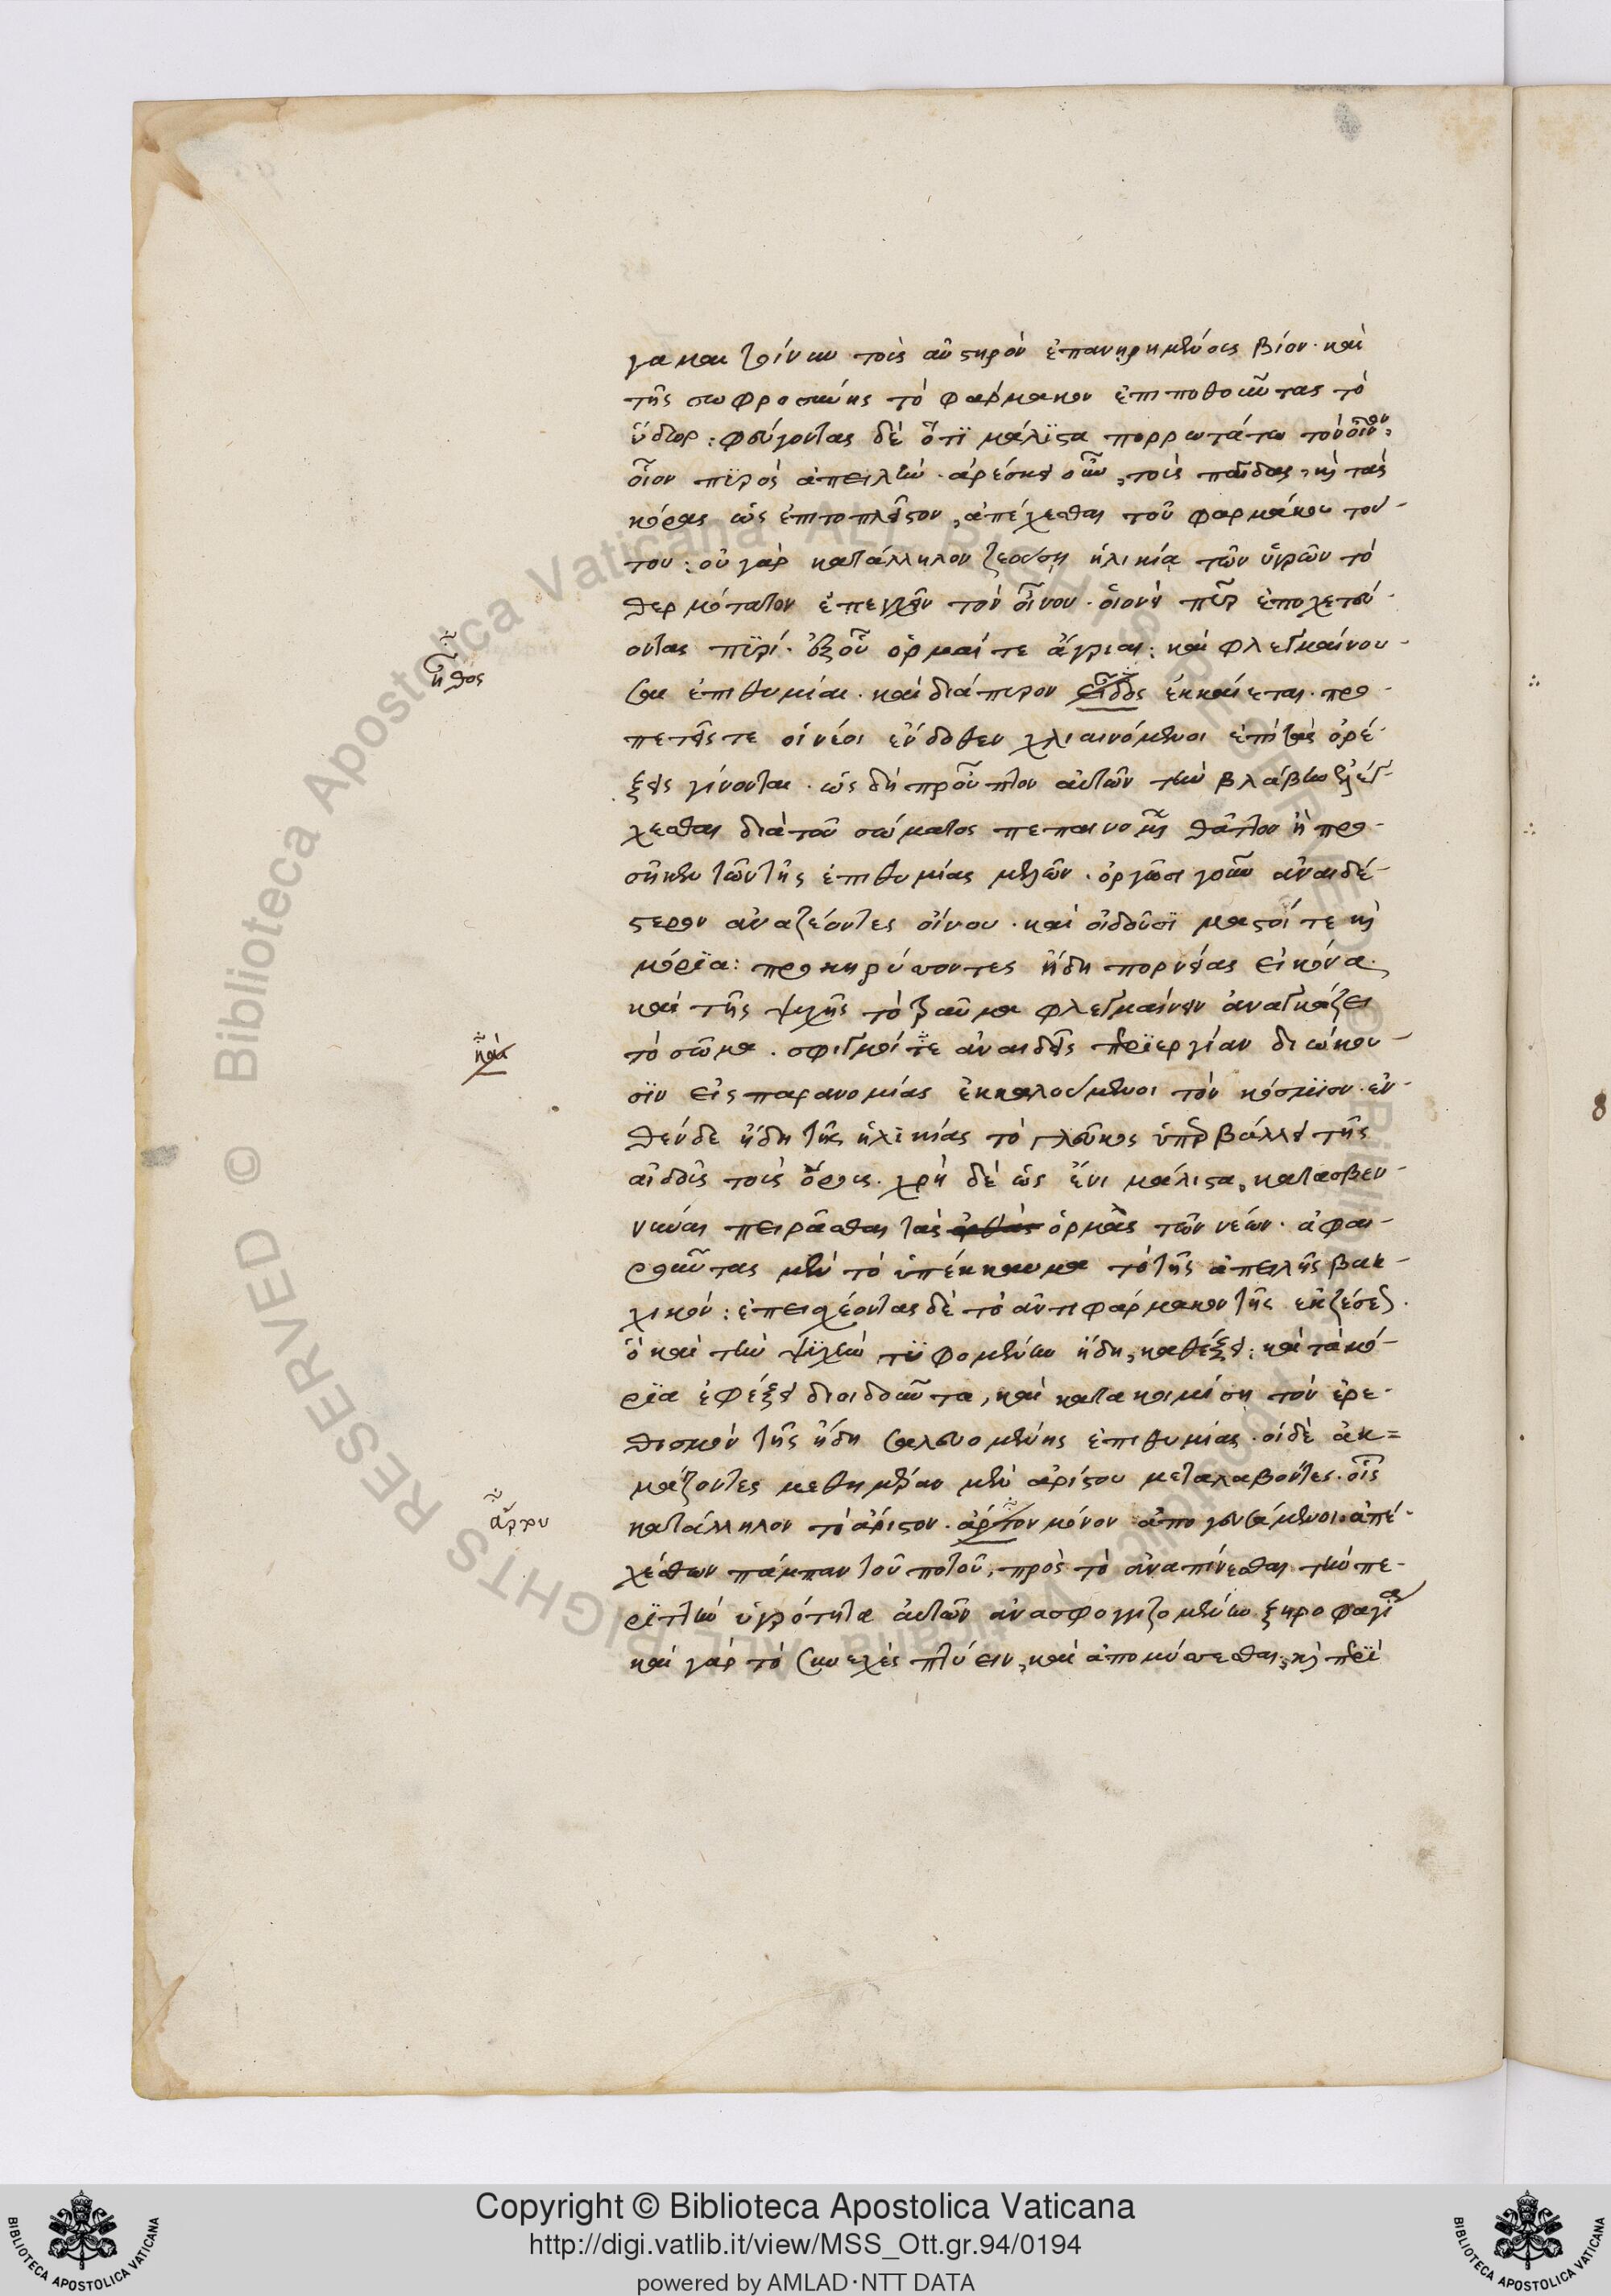 γα καὶ τοίνυν τοὺς αὐστηρὸν ἐπανῃρημένους βίον· καὶ
τῆς σωφροσύνης τὸ φάρμακον ἐπιποθοῦντας τὸ
ὕδωρ: φεύγοντας δὲ ὅτι μάλιστα πορρωτάτω τὸν οἶνον,
οἷον πυρὸς ἀπειλήν· ἀρέσκει οὖν, τοὺς παῖδας, καὶ τὰς
κόρας ὡς ἐπιτοπλεῖστον, ἀπέχεσθαι τοῦ φαρμάκου τού-
του: οὐ γὰρ κατάλληλον ζεούσῃ ἡλικίᾳ τῶν ὑγρῶν τὸ
θερμότατον ἐπεγχεῖν τὸν οἶνον· οἱονεὶ πῦρ ἐποχετεύ-
οντας πυρί· ἐξ οὗ ὁρμαί τε ἄγριαι: καὶ φλεγμαίνου-
σαι ἐπιθυμίαι· καὶ διάπυρον εἶδος ἐκκαίεται· προ-
πετεῖς τε οἱ νέοι ἔνδοθεν χλιαινόμενοι ἐπὶ τὰς ὀρέ-
ξεις γίνονται· ὡς δὴ προὖπτον αὐτῶν τὴν βλάβην ἐλέγ-
χεσθαι διὰ τοῦ σώματος πεπαινομένων θᾶττον ἢ προ-
σῆκεν τῶν τῆς ἐπιθυμίας μελῶν· ὀργῶσι γοῦν ἀναιδέ-
στερον ἀναζέοντες οἴνου· καὶ οἰδοῦσι μαστοί τε καὶ
μόρια: προκηρύσσοντες ἤδη πορνείας εἰκόνα·
καὶ τῆς ψυχῆς τὸ τραῦμα φλεγμαίνειν ἀναγκάζει
τὸ σῶμα· σφιγμοί τε ἀναιδεῖς περιεργίαν διώκου-
σιν εἰς παρανομίας ἐκκαλούμενοι τὸν κόσμιον· ἐν-
θένδε ἤδη τῆς ἡλικίας τὸ γλεῦκος ὑπερβάλλει τῆς
αἰδοῦς τοὺς ὅρους· χρὴ δὲ ὡς ἔνι μάλιστα, κατασβεν-
νύναι πειρᾶσθαι τὰς ὀρθὰς ὁρμὰς τῶν νέων· ἀφαι-
ροῦντας μὲν τὸ ὑπέκκαυμα τὸ τῆς ἀπειλῆς βακ-
χικόν: ἐπεισχέοντας δὲ τὸ ἀντιφάρμακον τῆς ἐκζέσεως·
ὃ καὶ τὴν ψυχὴν τυφομένην ἤδη, καθέξει: καὶ τὰ μό-
ρια ἐφέξει διοιδοῦντα, καὶ κατακοιμίσῃ τὸν ἐρε-
θισμὸν τῆς ἤδη σαλευομένης ἐπιθυμίας· οἱ δὲ ἀκ=
μάζοντες μεθημέραν μὲν ἀρίστου μεταλαβόντες· οἷς
κατάλληλον τὸ ἄριστον· ἄρτον μόνον ἀπογευσάμενοι· ἀπε-
χέσθων πάμπαν τοῦ ποτοῦ, πρὸς τὸ ἀναπίνεσθαι τὴν πε-
ριττὴν ὑγρότητα αὐτῶν ἀνασφογγιζομένην ξηροφαγίᾳ
καὶ γὰρ τὸ συνεχὲς πτύειν, καὶ ἀπομύσσεσθαι, καὶ περὶ
ἦθος